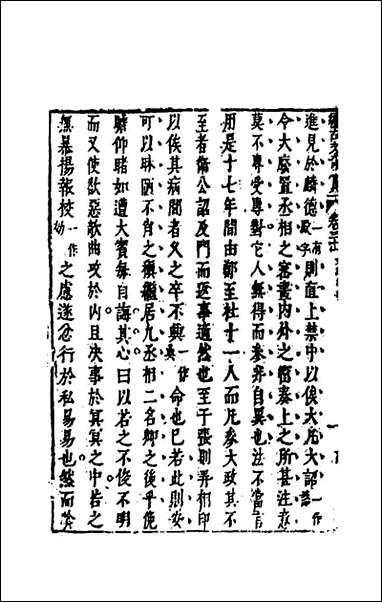 進見於麟德一有殿字則直上禁中以俟大凡大詔一作誥
令大廢置丞相之密畫內外之密奏上之所甚注意
莫不專受專對它人無得而參非自異也法不當言
用是十七年間由鄭至杜十一人而凡參大政其不
至者衛公詔及門而返事適然也至于張則弄相印
以俟其病間者久之卒不興一作命也已若此則安
可以昧陋不肖之稹繼居九丞相二名卿之後乎俛
仰睹如遭大賓每自誨其心曰以若之不俊不明
而又使欲惡欹曲攻於內且決事於冥冥之中若之
無暴揚報校一作効之慮遂忿行於私易易也然而陰